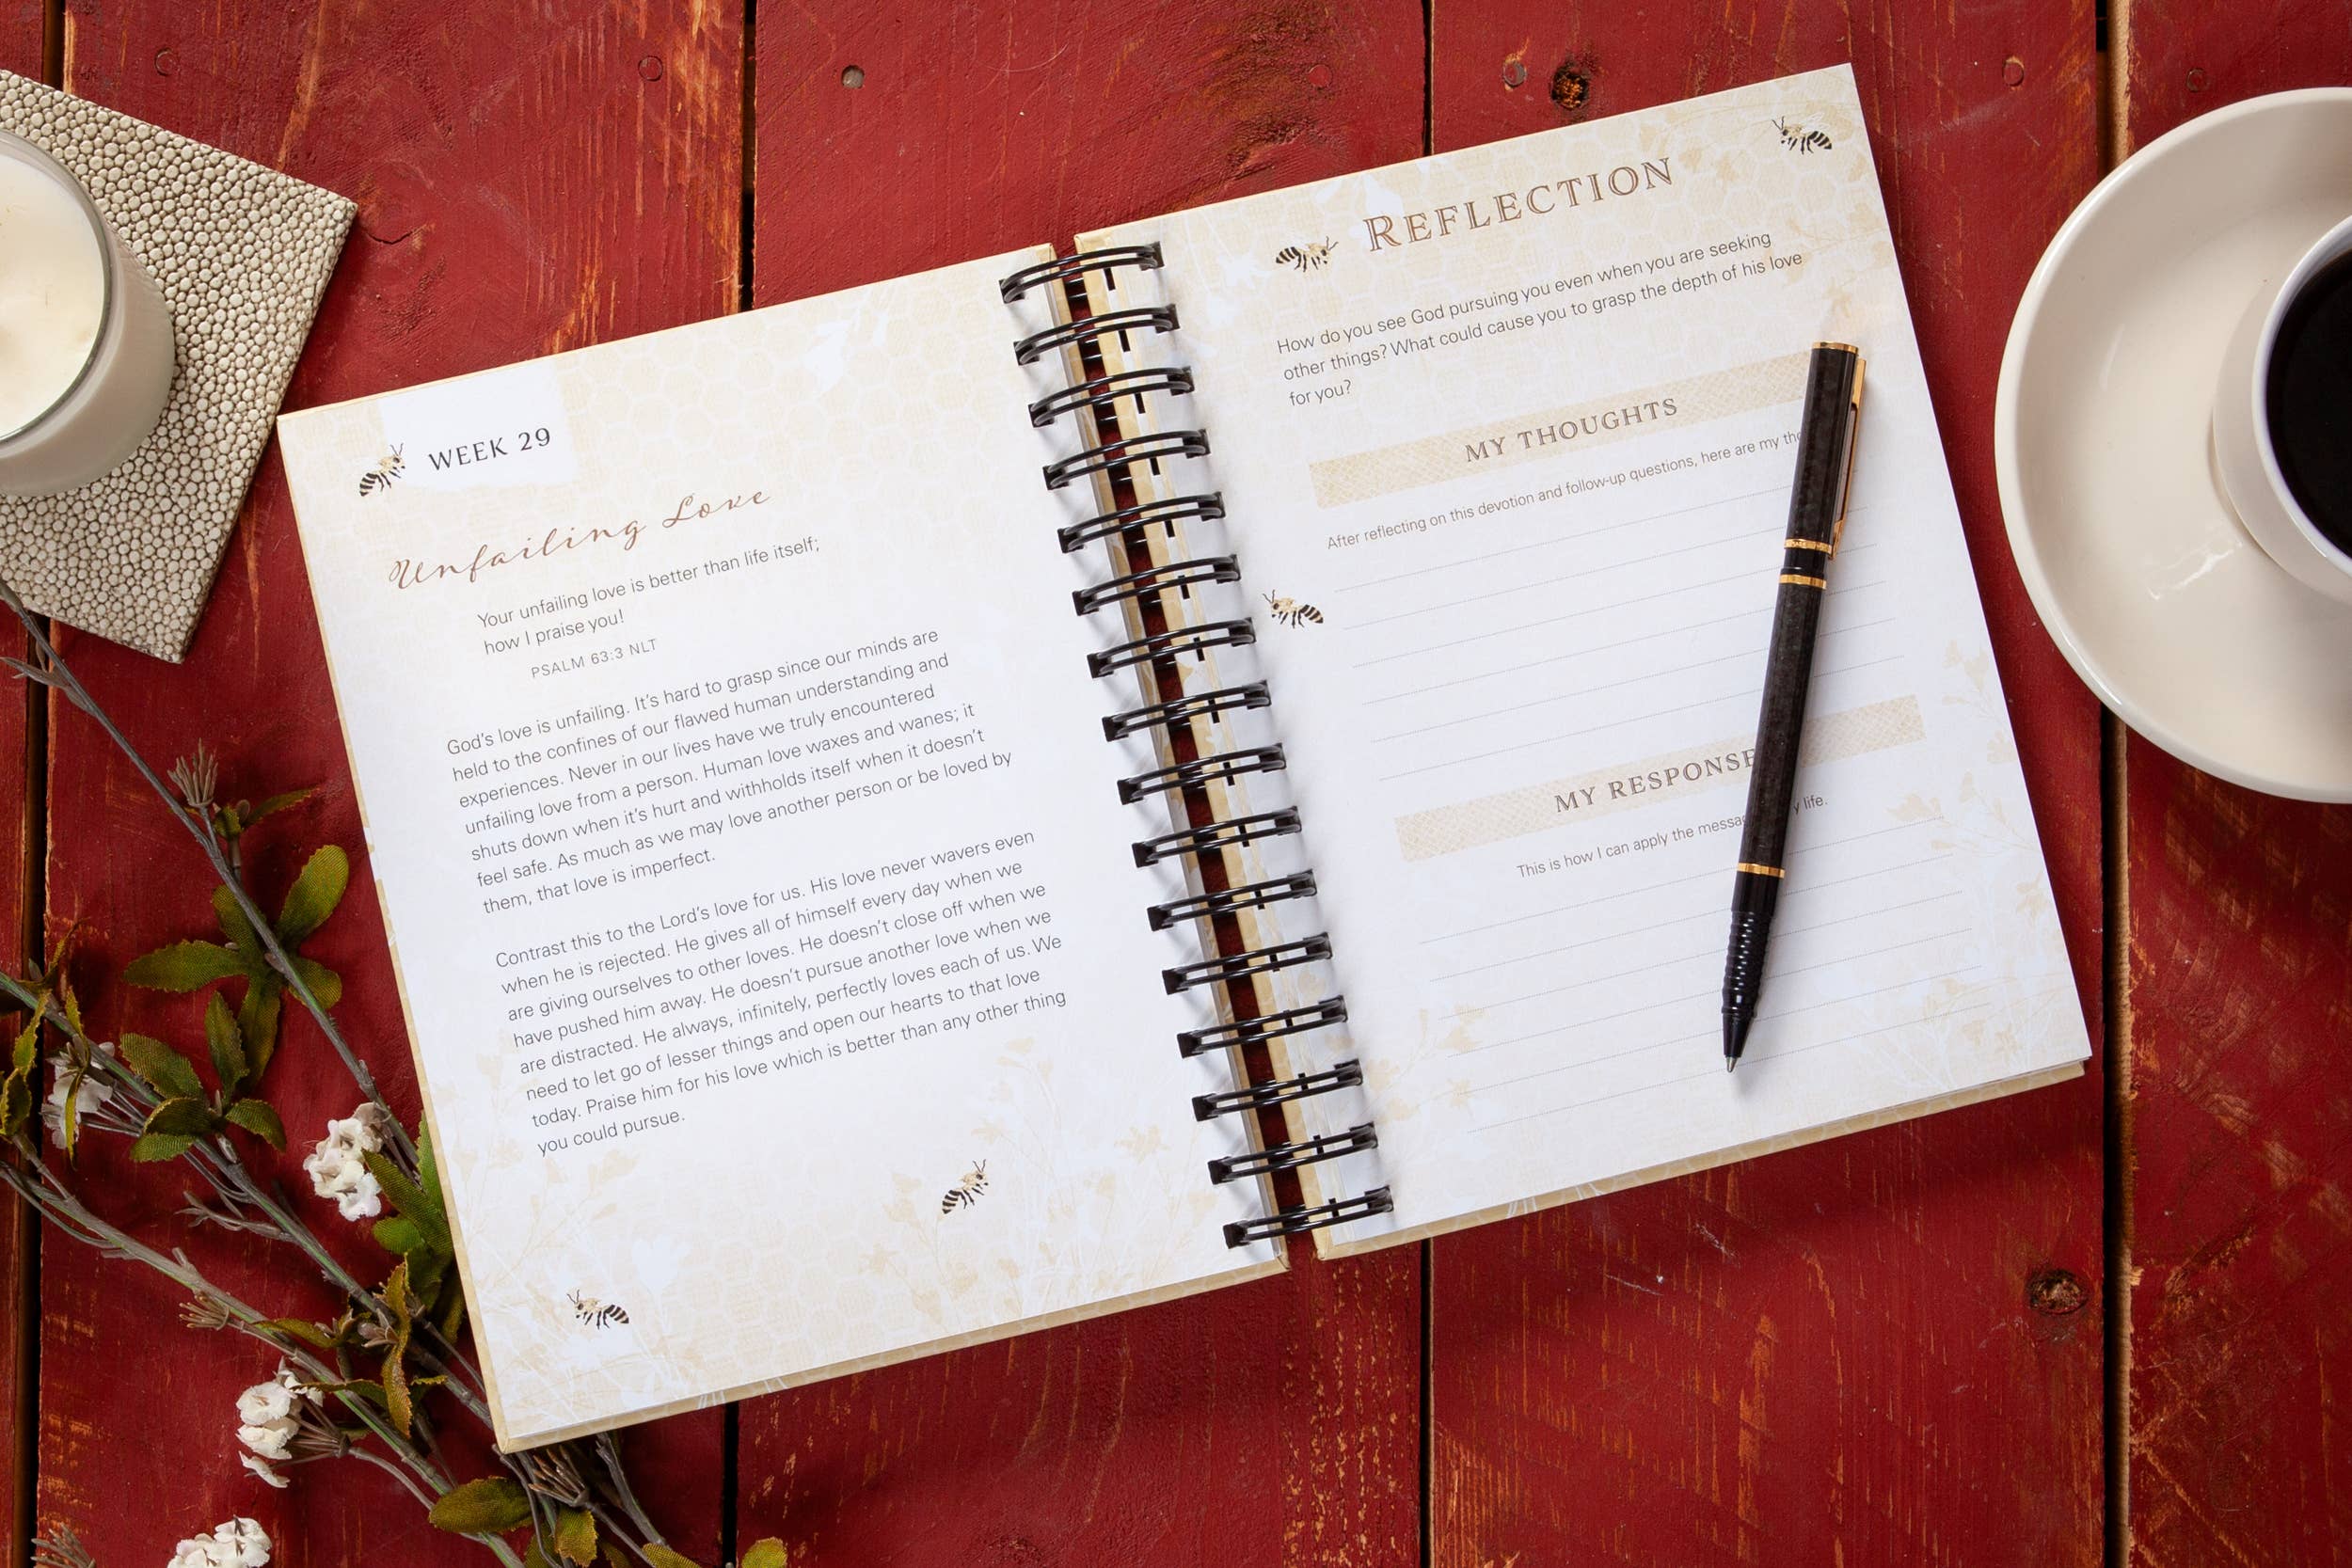 WEEK 29
Unfailing Love
Your unfailing love is better than life itself;
how I praise you!
PSALM 63:3 NLT
God's love is unfailing. It's hard to grasp since our minds are
held to the confines of our flawed human understanding and
experiences. Never in our lives have we truly encountered
unfailing love from a person. Human love waxes and wanes; it
shuts down when it's hurt and withholds itself when it doesn't
feel safe. As much as we may love another person or be loved by
them, that love is imperfect.
Contrast this to the Lord's love for us. His love never wavers even
when he is rejected. He gives all of himself every day when we
are giving ourselves to other loves. He doesn't close off when we
have pushed him away. He doesn't pursue another love when we
are distracted. He always, infinitely, perfectly loves each of us. We
need to let go of lesser things and open our hearts to that love
today. Praise him for his love which is better than any other thing
you could pursue.
REFLECTION
How do you see God pursuing you even when you are seeking
other things? What could cause you to grasp the depth of his love
for you?
MY THOUGHTS
After reflecting on this devotion and follow-up questions, here are my
MY RESPONSE
This is how I can apply the life.